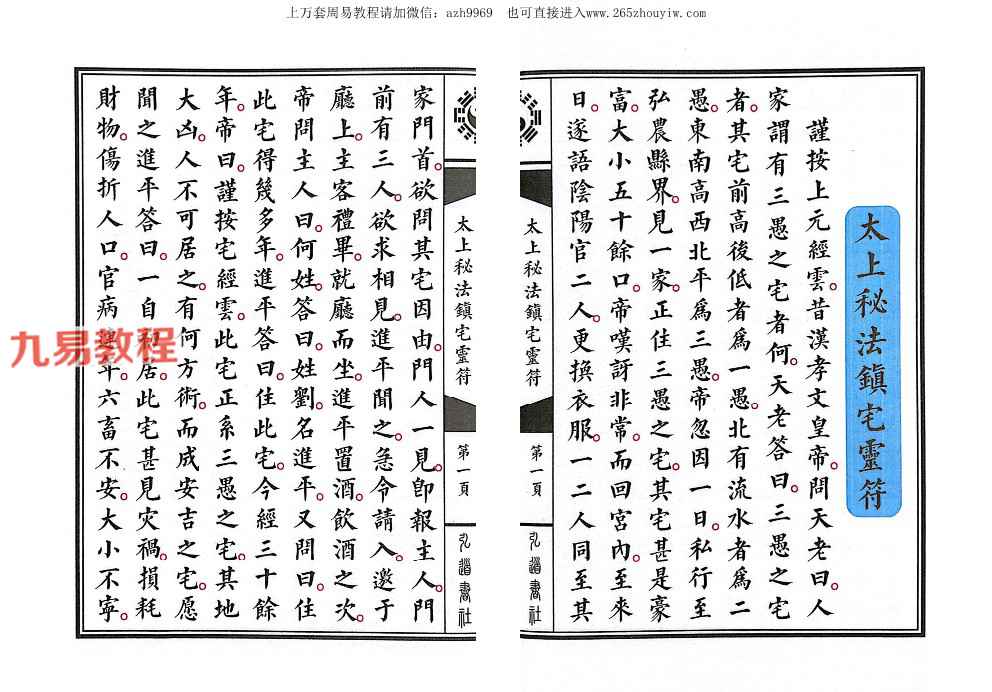 上万套周易教程请加微信：azh9969　也可直接进入www.265zhouyiw.com
太上秘法鎮宅靈符
謹按上元經雲。昔漢孝文皇帝。問天老曰。人
家謂有三愚之宅者何。天老答曰。三愚之宅
者。其宅前高後低者爲一愚。北有流水者爲二
愚。東南高西北平爲三愚。帝忽因一日。私行至
弘農縣界。見一家。正住三愚之宅。其宅甚是豪
富。大小五十餘口。帝嘆訝非常。而回宮內。至來
日。遂語陰陽官二人。更換衣服。一二人同至其
太上秘法鎮宅靈符
第一頁
弘道書社
太上秘法鎮宅靈符
第一頁
弘道書社
家門首。欲問其宅因由。門人一見。卽報主人。門
前有三人。欲求相見。進平聞之。急令請入。邀于
廳上。主客禮畢。就廳而坐。進平置酒。飲酒之次。
帝問主人曰。何姓。答曰。姓劉。名進平。又問曰。住
此宅得幾多年。進平答曰。住此宅。今經三十餘
年。帝曰。謹按宅經雲。此宅正系三愚之宅。其地
大凶。人不可居之。有何方術。而成安吉之宅。愿
聞之進平答曰。一自初居。此宅甚見灾禍。損耗
財物。傷折人口。官病連年。六畜不安。大小不寧。
九易教程